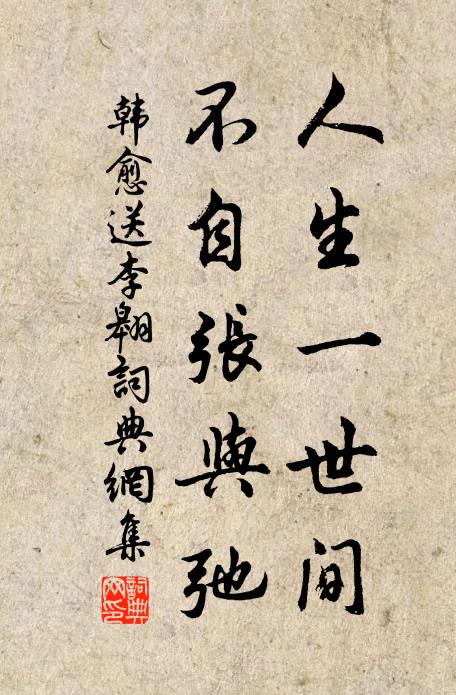 人生一世間
不自張與弛
韩愈送李翱詞典網集
詞典网印